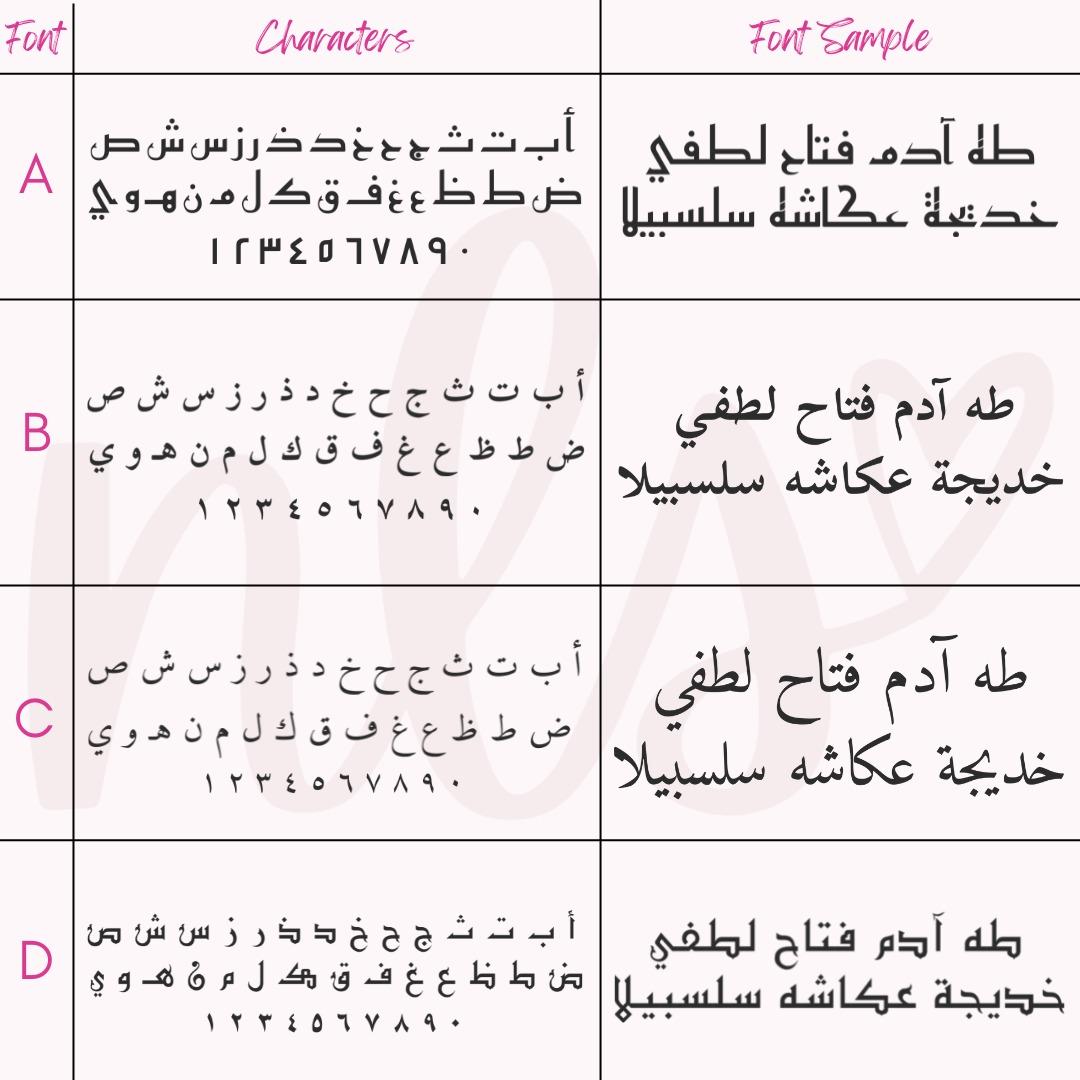 Font Characters Font Sample
A
أ ب ت ث ج ح خ د ذ ر ز س ش ص
ض ط ظ ع غ ف ق ك ل م ن هـ و ي
١ ٢ ٣ ٤ ٥ ٦ ٧ ٨ ٩ ٠
طه آدم فتاح لطفي
خديجة عكاشه سلسبيلا
B
أ ب ت ث ج ح خ د ذ ر ز س ش ص
ض ط ظ ع غ ف ق ك ل م ن هـ و ي
١ ٢ ٣ ٤ ٥ ٦ ٧ ٨ ٩ ٠
طه آدم فتاح لطفي
خديجة عكاشه سلسبيلا
C
أ ب ت ث ج ح خ د ذ ر ز س ش ص
ض ط ظ ع غ ف ق ك ل م ن هـ و ي
١ ٢ ٣ ٤ ٥ ٦ ٧ ٨ ٩ ٠
طه آدم فتاح لطفي
خديجة عكاشه سلسبيلا
D
أ ب ت ث ج ح خ د ذ ر ز س ش ص
ض ط ظ ع غ ف ق ك ل م ن هـ و ي
١ ٢ ٣ ٤ ٥ ٦ ٧ ٨ ٩ ٠
طه آدم فتاح لطفي
خديجة عكاشه سلسبيلا
nls